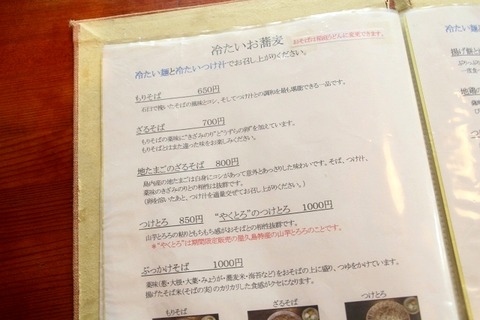 冷たいお蕎麦
おそばは細切うどんに変更できます。
冷たい麺と冷たいつけ汁でお召し上がりください。
もりそば 650円
石臼で挽いたそばの風味とコシ、そしてつけ汁との調和を最も堪能できる一品です。
ざるそば 700円
もりそばの薬味に"きざみのり"と"うずらの卵"を加えています。
もりそばとはまた違った味をお楽しみください。
地たまごのざるそば 800円
島内産の地たまごは白身にコシがあって意外とあっさりした味わいです。そば、つけ汁、
薬味のきざみのりとの相性は抜群です。
(卵を溶いたあと、つけ汁を適量交ぜてお召し上がりください。)
つけとろ 850円 "やくとろ"のつけとろ 1000円
山芋とろろの粘りともちもち感がおそばとの相性抜群です。
*"やくとろ"は期間限定販売の屋久島特産の山芋とろろのことです。
ぶっかけそば 1000円
薬味(葱・大根・大葉・みょうが・蕎麦米・海苔など)をおそばの上に盛り、つゆをかけています。
揚げたそば米(そばの実)のカリカリした食感がクセになります。
もりそば ざるそば つけとろ